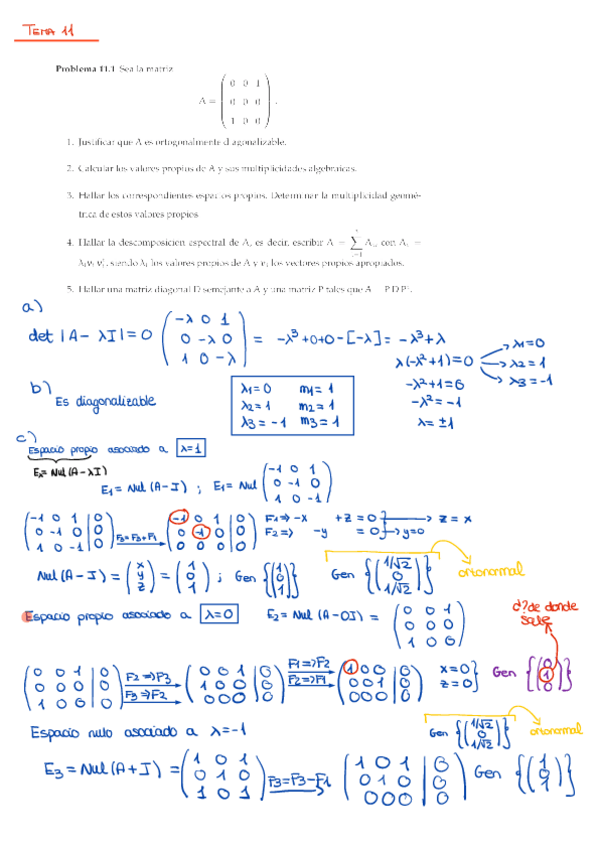 TEMA 11
Problema 11.1 Sea la matriz
A = ( 0 0 1
0 0 0
1 0 0 ) .
1. Justificar que A es ortogonalmente diagonalizable.
2. Calcular los valores propios de A y sus multiplicidades algebraicas.
3. Hallar los correspondientes espacios propios. Determinar la multiplicidad geomé-
trica de estos valores propios
4. Hallar la descomposición espectral de A, es decir, escribir A = ∑ Aᵢ, con Aᵢ =
λᵢvᵢvᵢᵗ, siendo λᵢ los valores propios de A y vᵢ los vectores propios apropiados.
5. Hallar una matriz diagonal D semejante a A y una matriz P tales que A = P D Pᵗ.
a)
det |A - λI| = 0 ( -λ 0 1
0 -λ 0
1 0 -λ ) = -λ³ + 0 + 0 - [-λ] = -λ³ + λ
λ(-λ² + 1) = 0 → λ1 = 0
→ λ2 = 1
→ λ3 = -1
-λ² + 1 = 0
-λ² = -1
λ = ±1
b)
Es diagonalizable
λ1 = 0 m1 = 1
λ2 = 1 m2 = 1
λ3 = -1 m3 = 1
c)
Espacio propio asociado a λ=1
Eλ = Nul (A - λI)
E1 = Nul (A - I) ; E1 = Nul ( -1 0 1
0 -1 0
1 0 -1 )
( -1 0 1 | 0
0 -1 0 | 0
1 0 -1 | 0 ) F3 = F3 + F1 ( -1 0 1 | 0
0 -1 0 | 0
0 0 0 | 0 ) F1 ⇒ -x + z = 0 → z = x
F2 ⇒ -y = 0 → y = 0
Nul (A - I) = ( x y z ) = ( 1 0 1 ) ; Gen {( 1 0 1 )} Gen {( 1/√2 0 1/√2 )} ortonormal
Espacio propio asociado a λ=0 E2 = Nul (A - 0I) = ( 0 0 1
0 0 0
1 0 0 )
d? de donde
sale
( 0 0 1 | 0
0 0 0 | 0
1 0 0 | 0 ) F2 ⇒ F3
F3 ⇒ F2 ( 0 0 1 | 0
1 0 0 | 0
0 0 0 | 0 ) F1 ⇒ F2
F2 ⇒ F1 ( 1 0 0 | 0
0 0 1 | 0
0 0 0 | 0 ) x = 0
z = 0 } Gen {( 0 1 0 )}
Espacio nulo asociado a λ=-1
Gen {( 1/√2 0 1/√2 )} ortonormal
E3 = Nul (A + I) = ( 1 0 1
0 1 0
1 0 1 ) F3 = F3 - F1 ( 1 0 1 | 0
0 1 0 | 0
0 0 0 | 0 ) Gen {( 1 0 1 )}